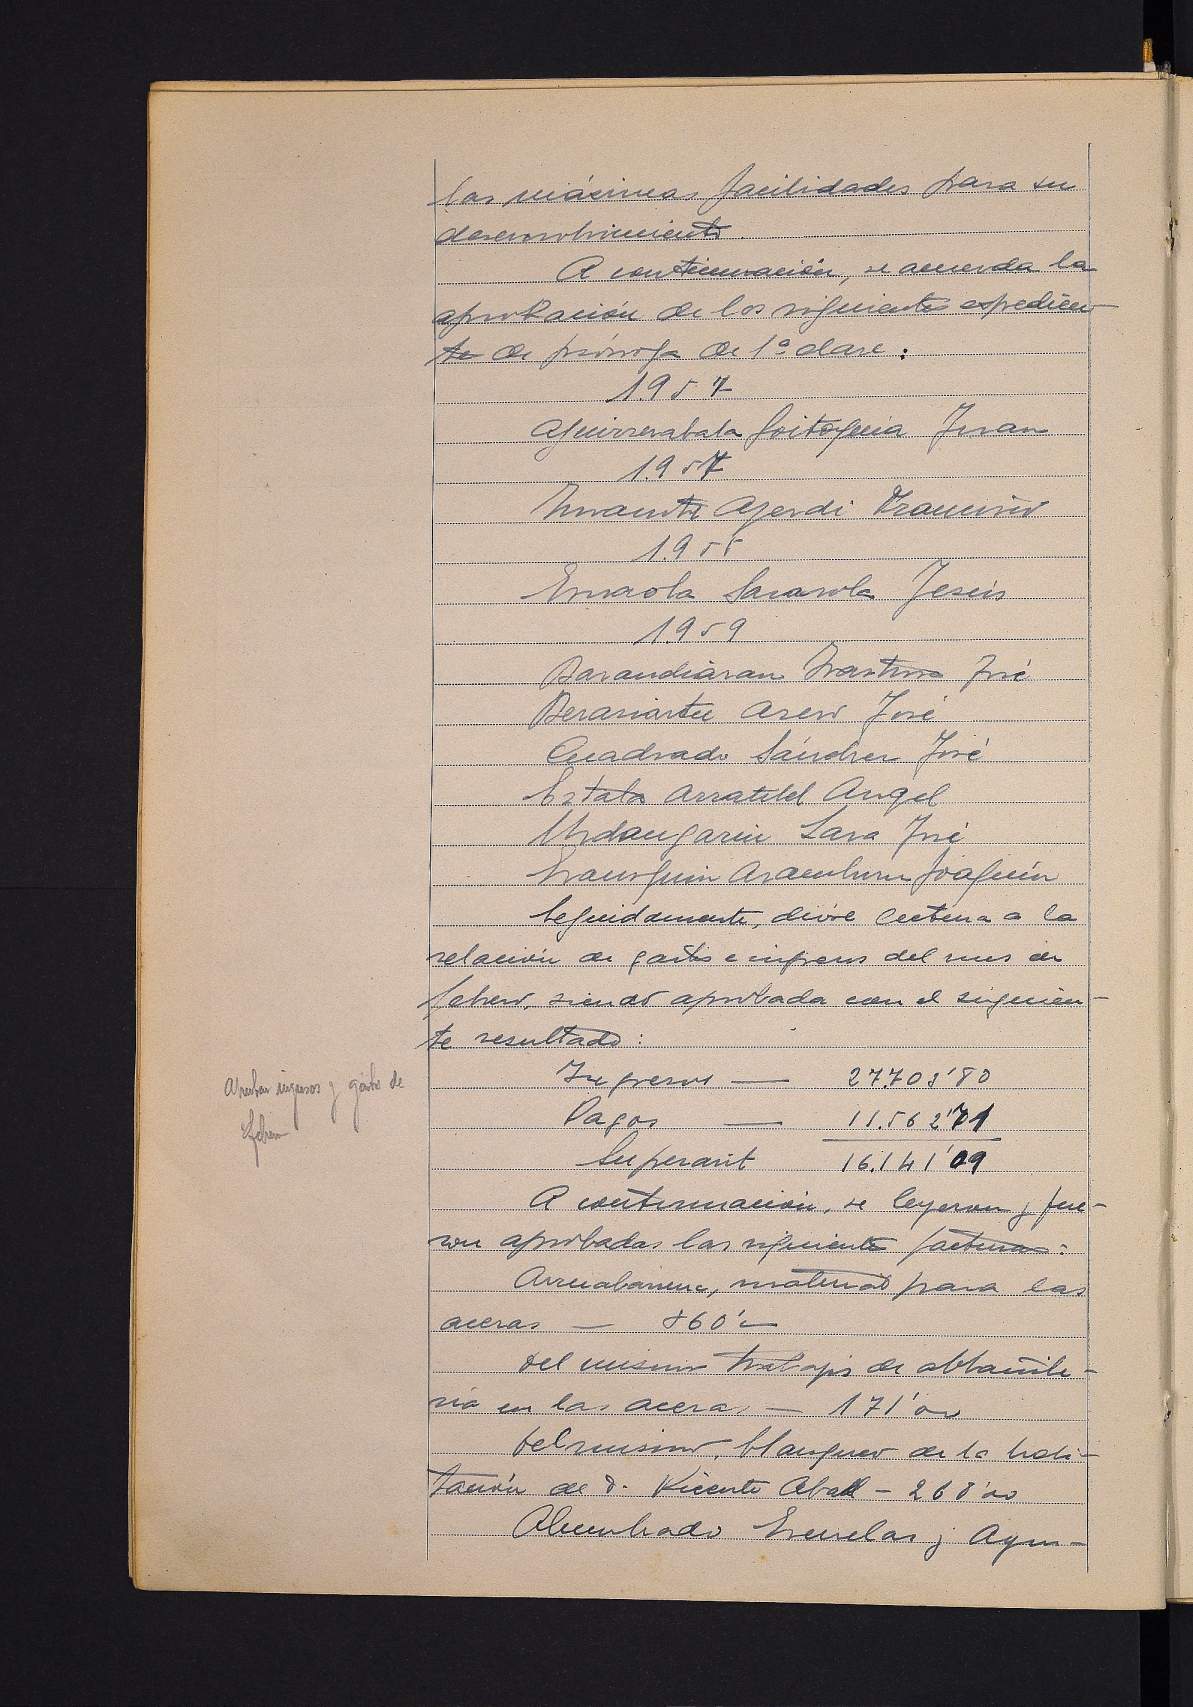 las máximas facilidades para su
desenvolvimiento.
A continuación, se acuerda la
aprobación de los siguientes expedien-
te de prórroga de 1ª clase:
1.957
Aguirrezabala Goitoquia Juan
1.957
Ayerdi Francisco
1.955
Errazola Sarasola Jesús
1.959
Barandiaran José
Berasiartu Asero José
Cuadrado Sánchez José
Estala Arratibel Angel
Urdangarin Lasa José
Iraurguin Aramburu Joaquín
Seguidamente, dióse lectura a la
relación de gastos e ingresos del mes de
febrero, siendo aprobada con el siguien-
te resultado:
Ingresos — 27.703'80
Pagos — 11.562'71
Superavit 16.141'09
Aprueban ingresos y gastos de
febrero
A continuación, se leyeron y fue-
ron aprobadas las siguientes facturas:
Arruabarrena, material para las
aceras — 860'—
Del mismo trabajos de albañile-
ria en las aceras — 171'00
Del mismo, blanqueo de la habi-
tación de D. Vicente Abad — 268'00
Alumbrado Escuelas y Ayun-